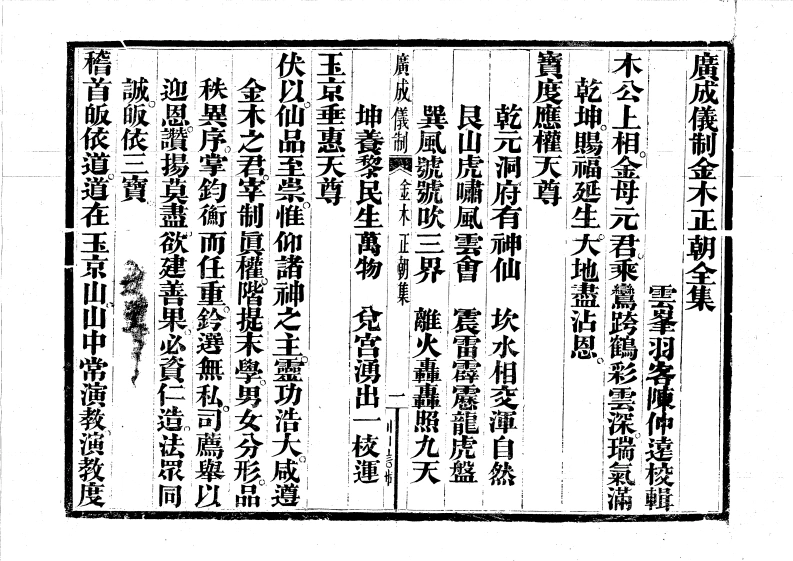 廣成儀制金木正朝全集
雲峯羽客陳仲遠校輯
木公上相。金母元君。乘鸞跨鶴彩雲深。瑞氣滿
乾坤。賜福延生。大地盡沾恩。
寶度應權天尊
乾元洞府有神仙 坎水相交渾自然
艮山虎嘯風雲會 震雷霹靂龍虎盤
巽風號號吹三界 離火轟轟照九天
廣成儀制 金木正朝集 一
坤養黎民生萬物 兌宮湧出一枝蓮
玉京垂惠天尊
伏以仙品至崇。惟仰諸神之主。靈功浩大。咸遵
金木之君。宰制眞權。階提末學。男女分形。品
秩異序。掌鈞衡而任重。鈐選無私。司薦舉以
迎恩。讚揚莫盡。欲建善果。必資仁造。法眾同
誠。皈依三寶
稽首皈依道。道在玉京山。山中常演教。演教度